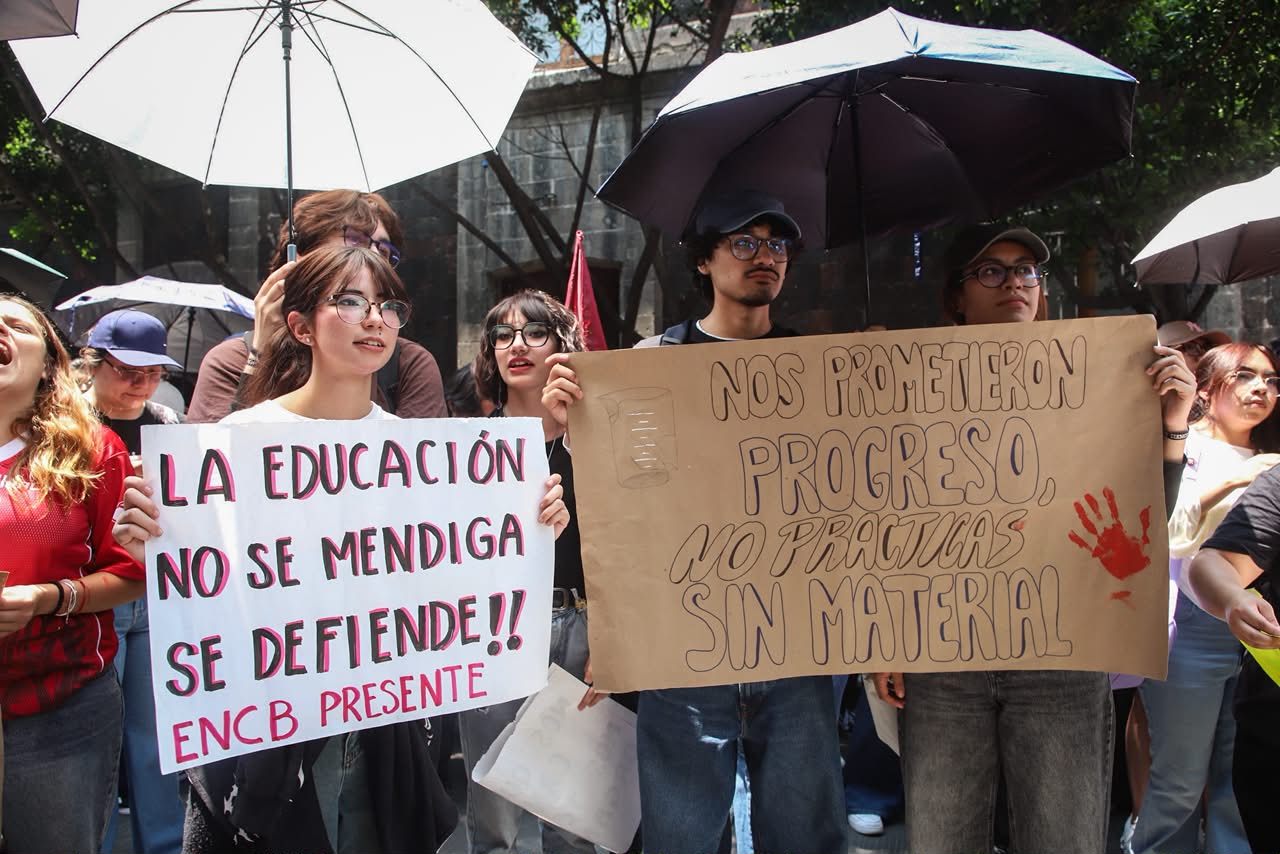 LA EDUCACIÓN
NO SE MENDIGA
SE DEFIENDE!!
ENCB PRESENTE
NOS PROMETIERON
PROGRESO,
NO PRACTICAS
SIN MATERIAL